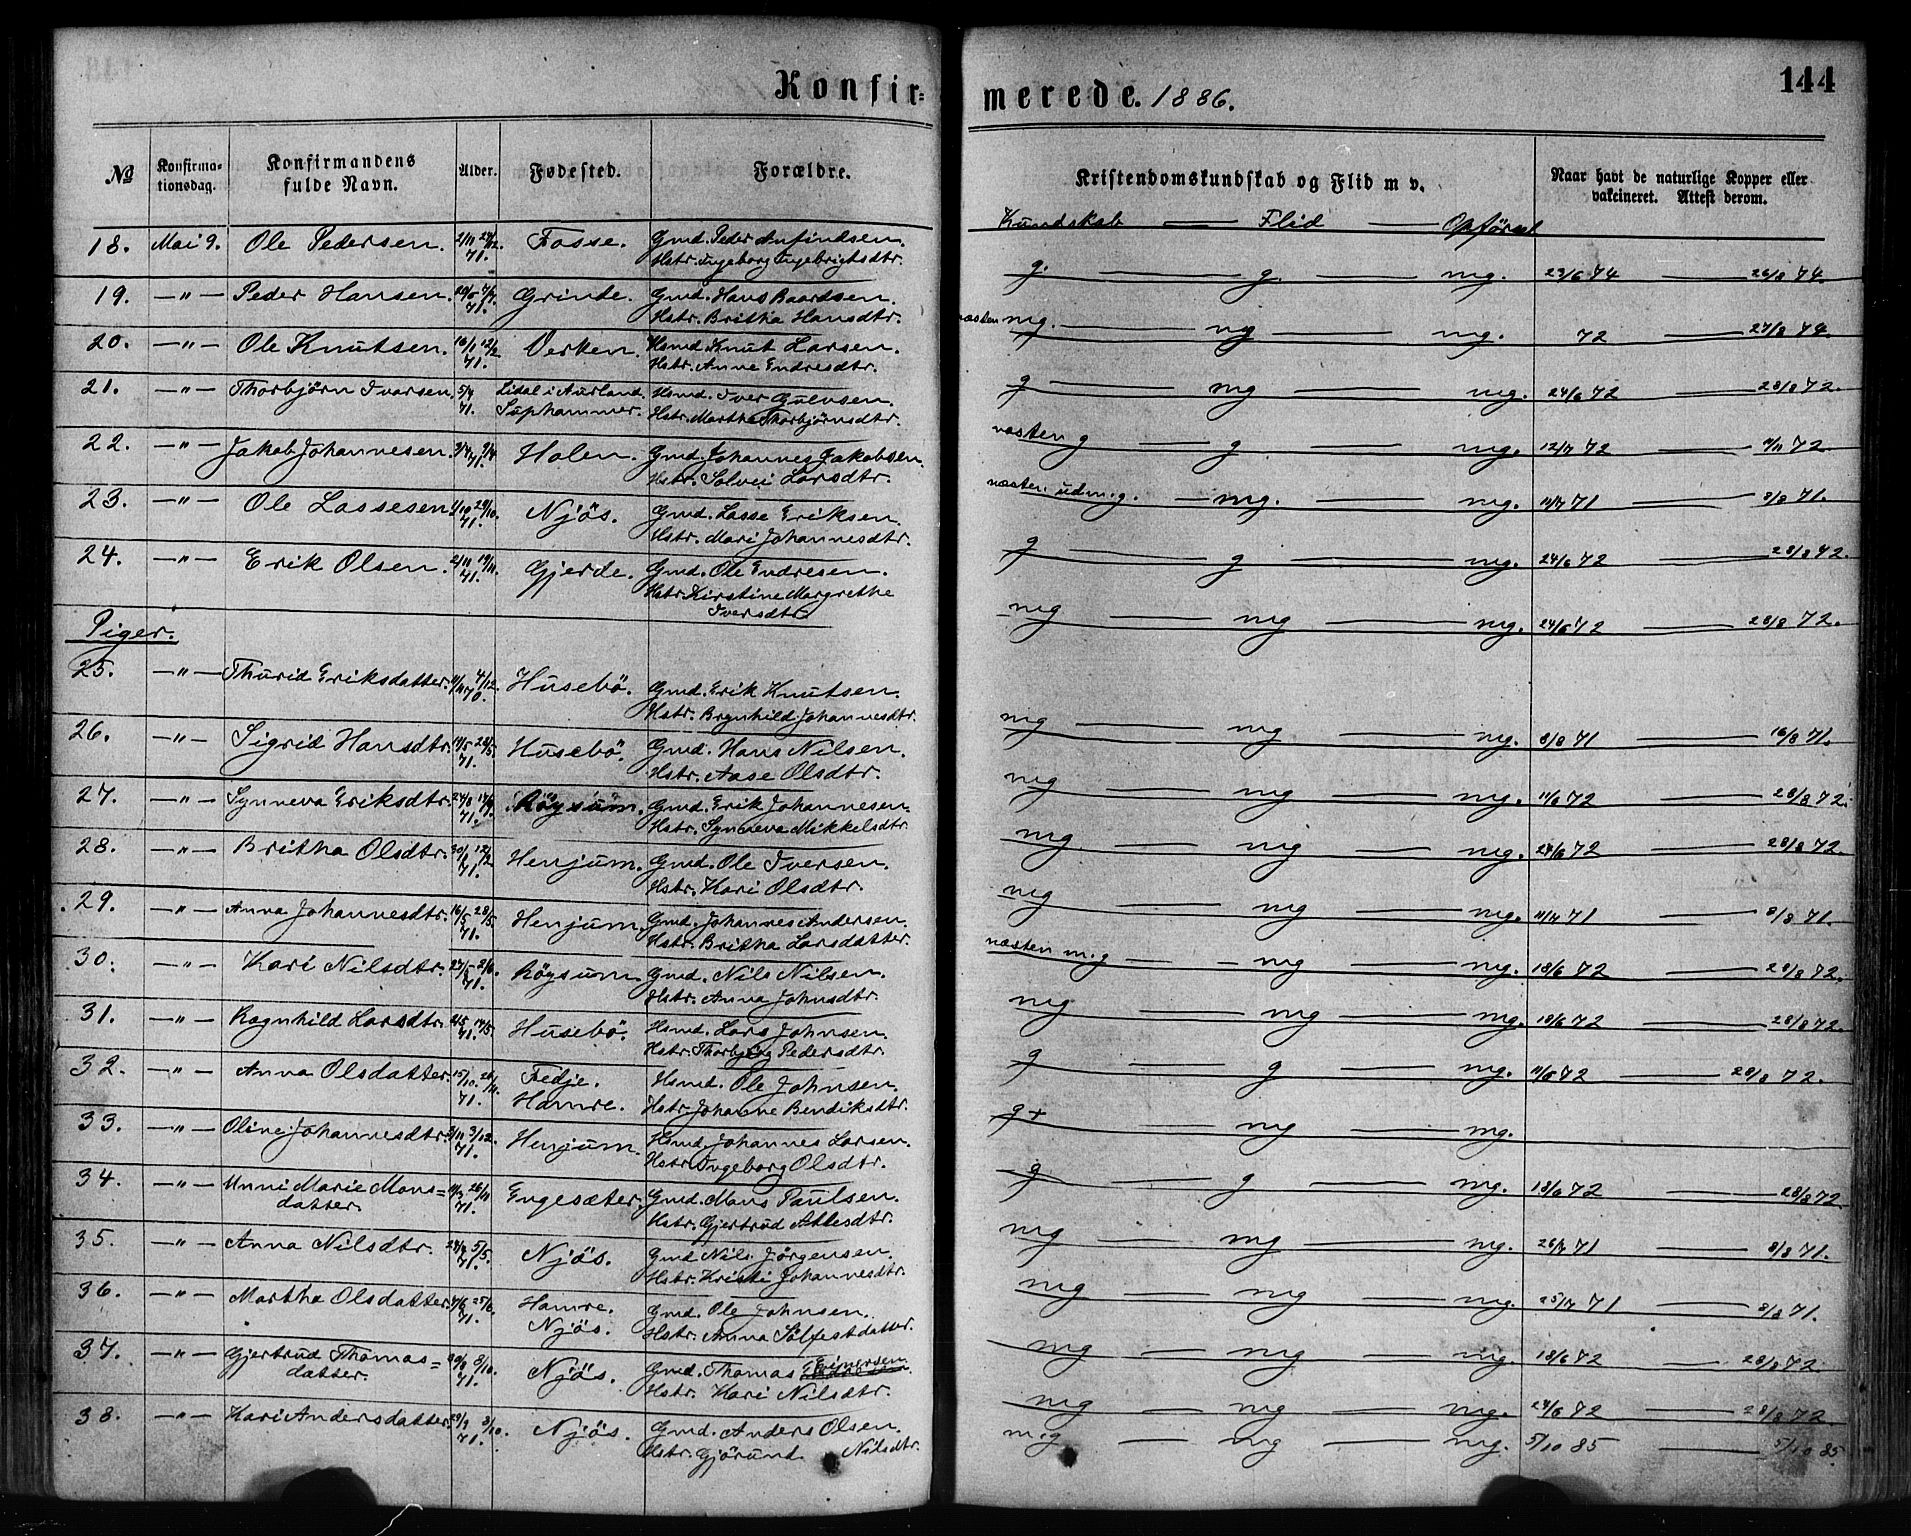 Konfir=
merede. 1886.
144
No
Konfirma-
tionsdag.
Konfirmandens
fulde Navn.
Alder.
Fødested.
Forældre.
Kristendomskundskab og Flid m v.
Naar havt de naturlige Kopper eller
vakcineret. Attest derom.
Kundskab — Flid — Opførsel
18. Mai 9. Ole Pedersen. 2/11 71. Fosse. Gmd. Peder Anfindsen.
Hstr. Ingeborg Ingebrigtsdtr.
g. — g. — mg. 23/6 74 — 26/8 74.
19. —"— Peder Hansen. 71. Grinde. Gmd. Hans Baardsen.
Hstr. Britha Hansdtr.
næsten mg. — mg — mg. 72 27/8 74.
20. —"— Ole Knutsen. 71. Verken. Hsmd. Knut Larsen.
Hstr. Anne Endresdtr.
g — mg — mg. 24/6 72 28/8 72.
21. —"— Thorbjörn Ivarsen. 5/4 71. Lidal i Aurland
Suphammer. Hsmd. Iver
Hstr. Martha Thorbjörnsdtr.
næsten g — g — mg. 72 — 72.
22. —"— Jakob Johannesen. 71. Holen. Gmd. Johannes Jakobsen.
Hstr. Solvei Larsdtr.
næsten udm. g. — mg. — mg. 71 — 8/8 71.
23. —"— Ole Lassesen 71. Njös. Gmd. Lasse Eriksen.
Hstr. Mari Johannesdtr.
g — g — mg. 24/6 72 28/8 72.
24. —"— Erik Olsen. 2/11 19/11 71. Gjerde. Gmd. Ole Endresen.
Hstr. Kirstine Margrethe
Iversdtr.
mg — mg — mg. 24/6 72 — 28/8 72.
Piger.
25. —"— Thurid Eriksdatter. 4/12 70. Husebö. Gmd. Erik Knutsen.
Hstr. Brynhild Johannesdtr.
mg — mg — mg. 8/8 71 — 16/8 71.
26. —"— Sigrid Hansdtr. 71. Husebö. Gmd. Hans Nilsen.
Hstr. Aase Olsdtr.
mg — mg — mg. 11/6 72 — 28/8 72.
27. —"— Synneva Eriksdtr. 71. Röysum. Gmd. Erik Johannesen
Hstr. Synneva Mikkelsdtr.
mg — mg — mg. 24/6 72 — 28/8 72.
28. —"— Britha Olsdtr. 71. Henjum. Gmd. Ole Iversen.
Hstr. Kari Olsdtr.
mg — mg — mg. 71 — 8/8 71.
29. —"— Anna Johannesdtr. 16/5 28/5 71. Henjum. Gmd. Johannes Andersen.
Hstr. Britha Larsdatter.
næsten m.g — mg — mg. 18/6 72 — 28/8 72.
30. —"— Kari Nilsdtr. 71. Röysum. Gmd. Nils Nilsen.
Hstr. Anna Johnsdtr.
mg — mg — mg. 18/6 72 — 28/8 72.
31. —"— Ragnhild Larsdtr. 71. Husebö. Hsmd. Lars Johnsen.
Hstr. Thorbjörg Pedersdtr.
g — g — mg. 11/6 72 — 28/8 72.
32. —"— Anna Olsdatter. 15/10. 26/11. 71. Fedje.
Hamre. Hsmd. Ole Johnsen.
Hstr. Johanne Bendiksdtr.
g+ — mg — mg.
33. —"— Oline Johannesdtr. 3/12. 71. Henjum. Hsmd. Johannes Larsen.
Hstr. Ingeborg Olsdtr.
g — g — mg. 18/6 72 — 28/8 72.
34. —"— Unni Marie Mons=
datter. 71. Engesæter. Gmd. Mons Paulsen.
Hstr. Gjertrud Atlesdtr.
mg — mg — mg. 26/7 71 — 8/8 71.
35. —"— Anna Nilsdtr. 5/5. 71. Njös. Gmd Nils Jörgensen.
Hstr. Kristi Johannesdtr.
mg — mg — mg. 25/7 71 — 8/8 71.
36. —"— Martha Olsdatter. 25/6. 71. Hamre.
Njös. Gmd. Ole Johnsen.
Hstr. Anna Sölfestdatter.
mg — mg — mg. 18/6 72 — 28/8 72.
37. —"— Gjertrud Thomas=
datter. 8/10. 71. Njös. Gmd. Thomas
Hstr. Kari Nilsdtr.
mg — mg — mg. 24/6 72 — 28/8 72.
38. —"— Kari Andersdatter. 8/10. 71. Njös. Gmd. Anders Olsen.
Hstr. Gjörund Nilsdtr.
m.g — mg — mg. 5/10 85 — 5/10 85.